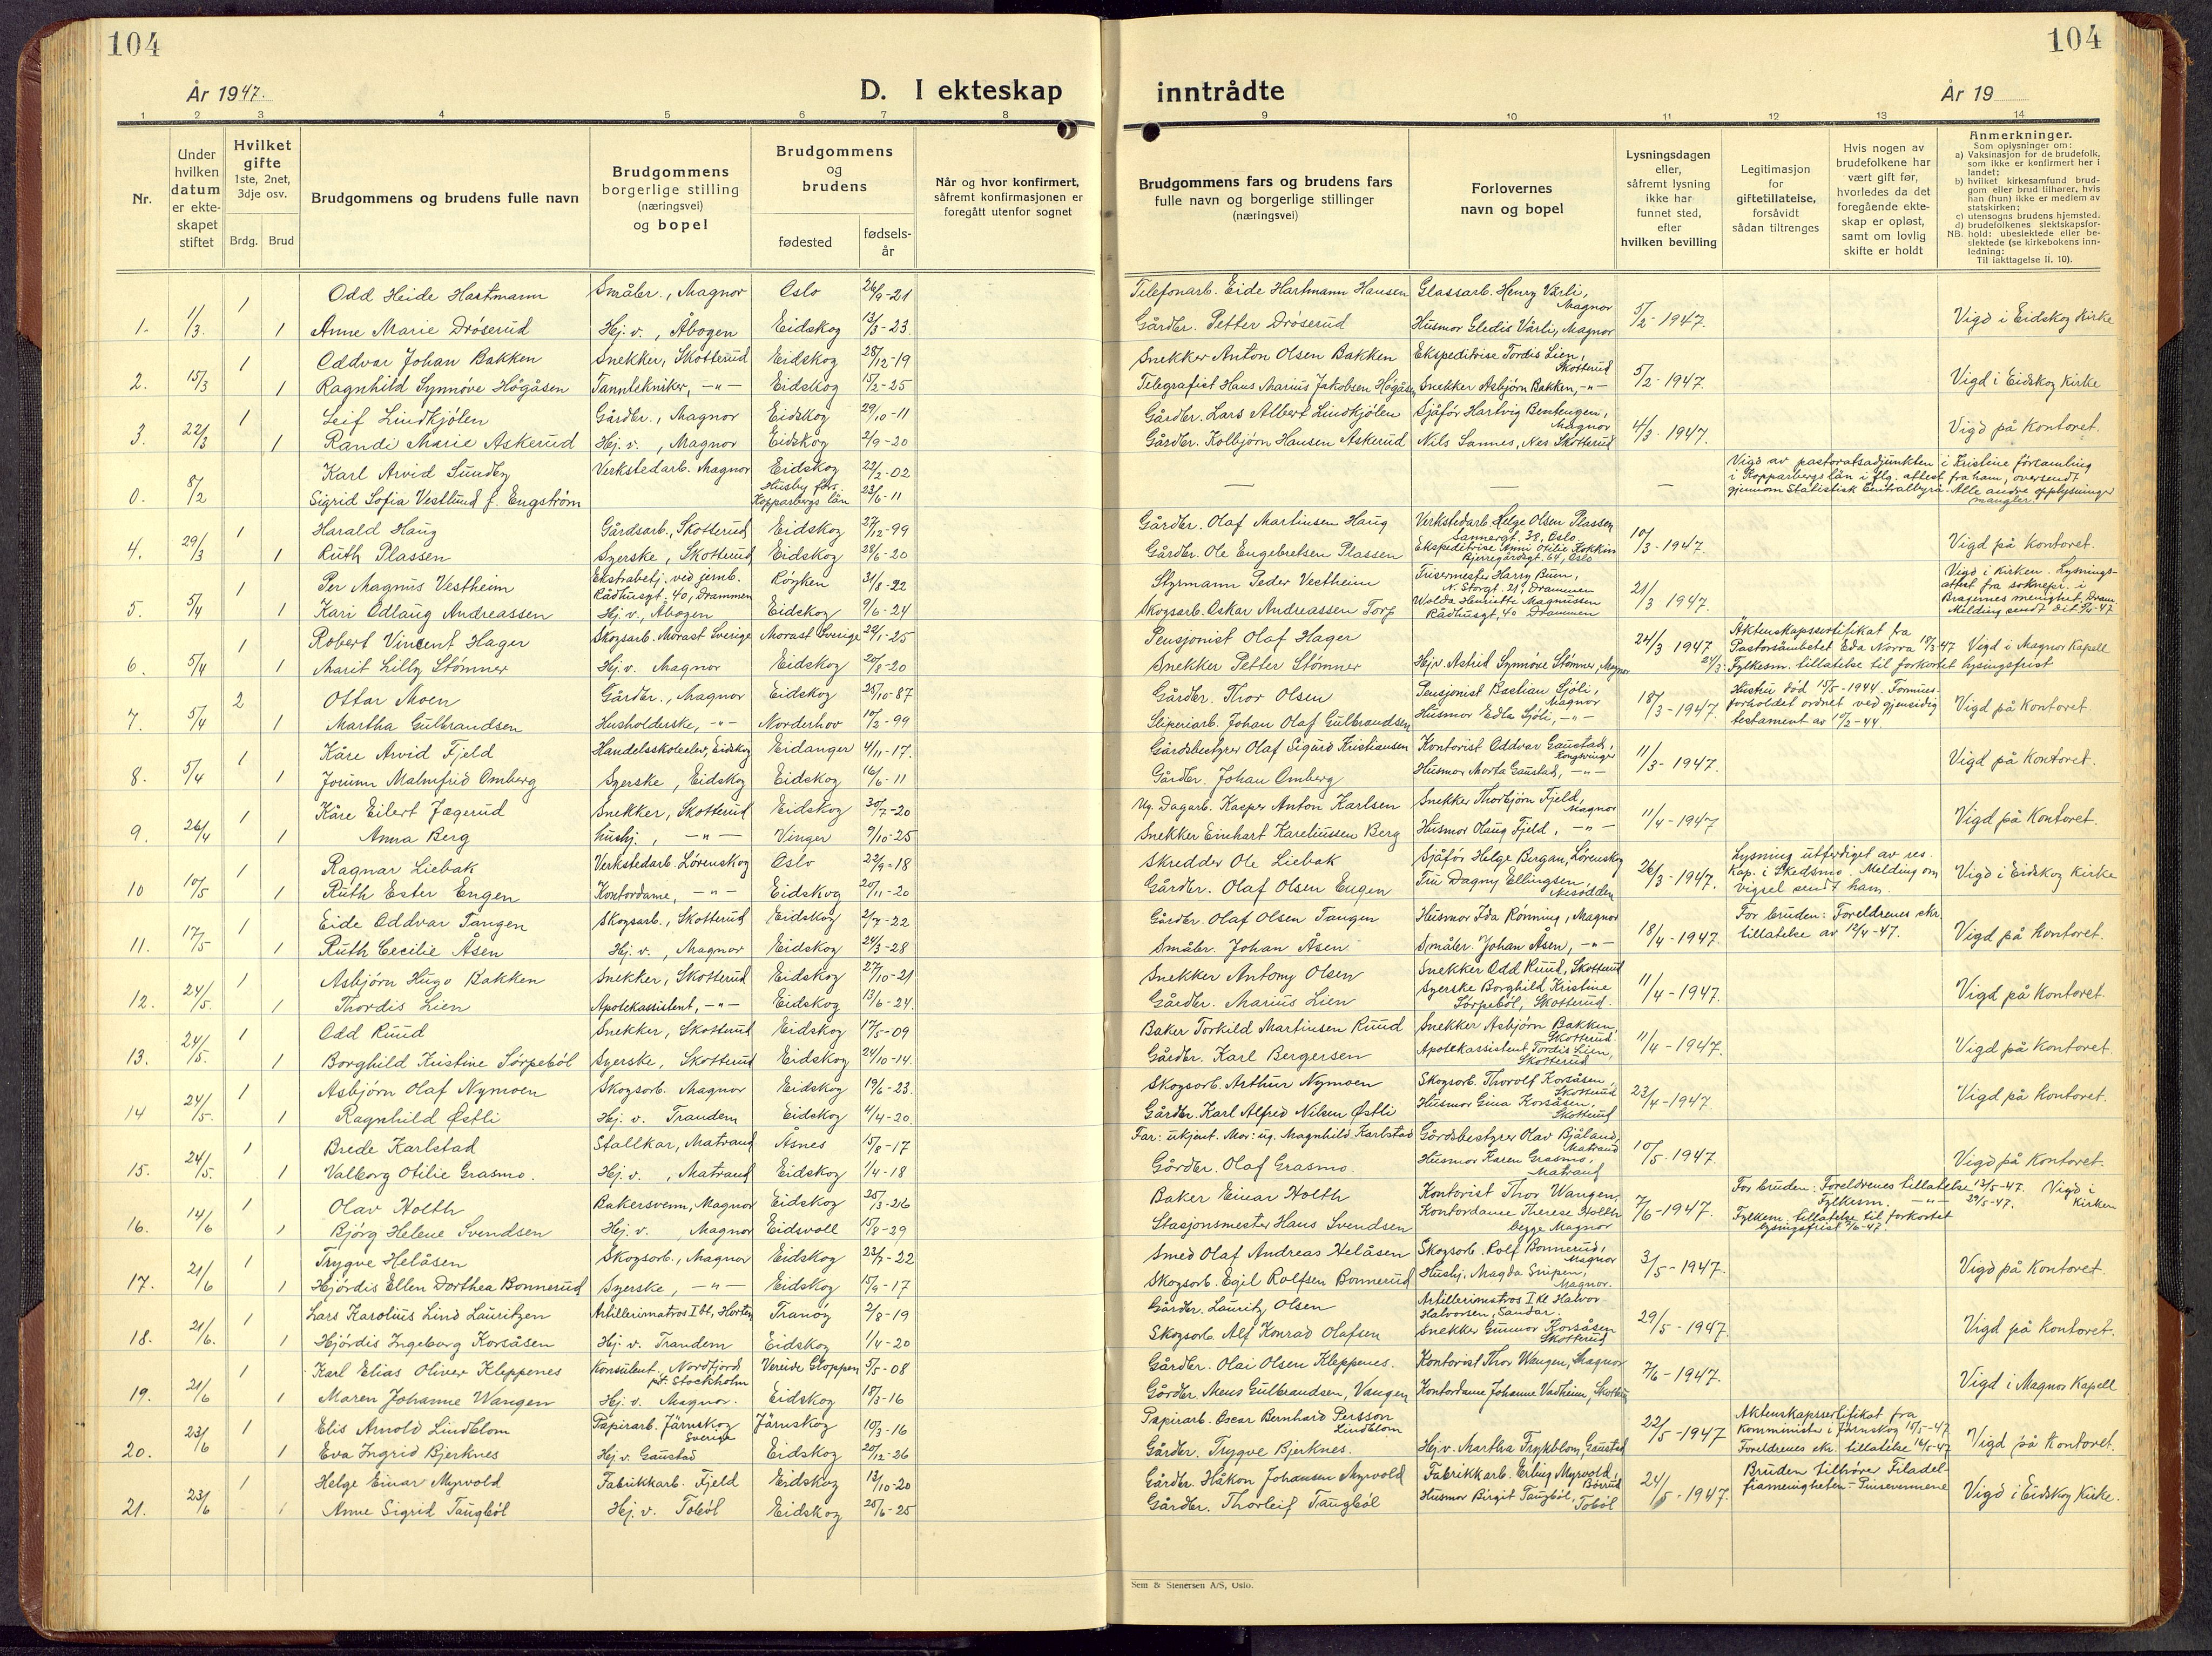 104
104
År 1947.
D. I ekteskap
inntrådte
År 19
1 2 3 4 5 6 7 8
9 10 11 12 13 14
Nr.
Under hvilken datum er ekteskapet stiftet
Hvilket gifte 1ste, 2net, 3dje osv.
Brdg. Brud
Brudgommens og brudens fulle navn
Brudgommens borgerlige stilling (næringsvei) og bopel
Brudgommens og brudens
fødested
fødsels-år
Når og hvor konfirmert, såfremt konfirmasjonen er foregått utenfor sognet
Brudgommens fars og brudens fars fulle navn og borgerlige stillinger (næringsvei)
Forlovernes navn og bopel
Lysningsdagen eller, såfremt lysning ikke har funnet sted, efter hvilken bevilling
Legitimasjon for giftetillatelse, forsåvidt sådan tiltrenges
Hvis nogen av brudefolkene har vært gift før, hvorledes da det foregående ekteskap er opløst, samt om lovlig skifte er holdt
Anmerkninger.
Som oplysninger om:
a) Vaksinasjon for de brudefolk, som ikke er konfirmert her i landet;
b) hvilket kirkesamfund brudgom eller brud tilhører, hvis han (hun) ikke er medlem av statskirken;
c) utensogns brudens hjemsted.
d) brudefolkenes slektskapsforhold: ubeslektede eller beslektede (se kirkebokens innledning:
NB. Til iakttagelse II. 10).
1. 1/3. 1 Odd Heide Hartmann Småbr., Magnor Oslo 26/9-21
1 Anne Marie Drøserud Hj. v., Åbogen Eidskog 13/3-23.
Telefonarb. Eide Hartmann Hansen Glassarb. Henry Vårli, Magnor
Gårdbr. Petter Drøserud Husmor Gledis Vårli, Magnor 5/2-1947. Vigd i Eidskog kirke
2. 15/3 1 Oddvar Johan Bakken Snekker, Skotterud Eidskog 28/12-19
1 Ragnhild Synnøve Høgåsen Tanntekniker, -"- Eidskog 15/2-25
Snekker Anton Olsen Bakken Ekspeditrise Tordis Lien, Skotterud
Telegrafist Hans Marius Jakobsen Høgåsen Snekker Asbjørn Bakken, -"- 5/2-1947. Vigd i Eidskog kirke
3. 22/3 1 Leif Lindkjølen Gårdbr., Magnor Eidskog 29/10-11
1 Randi Marie Askerud Hj. v., Magnor Eidskog 2/9-20
Gårdbr. Lars Albert Lindkjølen Sjåfør Hartvig Bentengen, Magnor
Gårdbr. Kolbjørn Hansen Askerud Nils Sannes, Nes. Skotterud 4/3-1947. Vigd på kontoret.
0. 8/2 Karl Arvid Sundby Verkstedarb. Magnor Eidskog 22/2-02
Sigrid Sofia Vestlund f. Engstrøm Husby förs. Kopparbergs län 23/6-11
— — — Vigd av pastoratsadjunkten i Kristine församling
i Kopparbergs län i flg. attest fra ham, oversendt
gjennom Statistisk Sentralbyrå. Alle andre opplysninger
mangler
4. 29/3 1 Harald Haug Gårdsarb., Skotterud Eidskog 27/12-99
1 Ruth Plassen Syerske, Skotterud Eidskog 28/6-20
Gårdbr. Olaf Martinsen Haug Verkstedarb. Helge Olsen Plassen Sannergt. 38, Oslo.
Gårdbr. Ole Engebretsen Plassen Ekspeditrise Anni Otilie Kokkin Bjerregårdsgt. 64, Oslo 10/3-1947. Vigd på kontoret.
5. 5/4 1 Per Magnus Vestheim Ekstrabetj. ved jernb. Rådhusgt. 40, Drammen Røyken 31/8-22
1 Kari Odlaug Andreassen Hj. v., Åbogen Eidskog 9/6-24
Styrmann Peder Vestheim Frisermester Harry Buen, N. Storgt. 21, Drammen
Skogsarb. Oskar Andreassen Torp Walda Henriette Magnussen Rådhusgt. 40 Drammen 21/3 1947. Vigd i kirken. Lysnings-
attest fra soknepr. i
Bragernes menighet, Dram.
Melding sendt dit 8/4-47
6. 5/4 1 Robert Vincent Hager Skogsarb. Morast Sverige Morast Sverige 22/1-25
1 Marit Lilly Stømner Hj. v. Magnor Eidskog 20/8-20
Pensjonist Olaf Hager 24/3 1947 Äktenskapssertifikat fra
Pastorsämbetet Eda Norra 18/3 47 Vigd i Magnor Kapell
Snekker Petter Stømner Hj.v. Astrid Synnøve Stømner, Magnor 24/3. Fylkesm. tillatelse til forkortet lysingsfrist
7. 5/4 2 Ottar Moen Gårdbr., Magnor Eidskog 25/10-87
1 Martha Gulbrandsen Husholderske, -"- Norderhov 10/2-99
Gårdbr. Thor Olsen Pensjonist Bastian Sjøli, Magnor
Sliperiarb. Johan Olaf Gulbrandsen Husmor Edla Sjøli, -"- 18/3-1947. Hustru død 15/5-1944. Formues-
forholdet ordnet ved gjensidig
testament av 19/2-44 Vigd på kontoret.
8. 5/4 1 Kåre Arvid Fjeld Handelsskoleelev, Eidskog Eidanger 4/11-17.
1 Jorunn Malmfrid Omberg Syerske, Eidskog Eidskog 16/6-11
Gårdsbestyrer Olaf Sigurd Kristiansen Kontorist Oddvar Gaustad, Kongsvinger
Gårdbr. Johan Omberg Husmor Marta Gaustad, -"- 11/3-1947. Vigd på kontoret.
9. 26/4 1 Kåre Eilert Jægerud Snekker, Skotterud Eidskog 30/7-20
1 Anna Berg hushj., -"- Vinger 9/10-25
Ug. Dagarb. Kasper Anton Karlsen Snekker Thorbjørn Fjeld, Magnor
Snekker Einhart Kareliussen Berg Husmor Olaug Fjeld, -"- 11/4-1947 Vigd på kontoret.
10 10/5 1 Ragnar Liebak Verkstedarb. Lørenskog Oslo 22/9-18
1 Ruth Ester Engen Kontordame, -"- Eidskog 20/11-20
Skredder Ole Liebak Sjåfør Helge Bergan, Lørenskog
Gårdbr. Olaf Olsen Engen Fru Dagny Ellingsen Nesodden 26/3-1947. Lysning utferdiget av res.
kap. i Skedsmo. Melding om
vigsel sendt ham. Vigd i Eidskog kirke
11. 17/5 1 Eide Oddvar Tangen Skogsarb., Skotterud Eidskog 2/7-22
1 Ruth Cecilie Åsen Hj. v., Magnor Eidskog 24/3-28
Gårdbr. Olaf Olsen Tangen Husmor Ida Rønning, Magnor
Småbr. Johan Åsen Småbr. Johan Åsen, -"- 18/4-1947. For bruden: Foreldrenes skr.
tillatelse av 12/4-47. Vigd på kontoret.
12. 24/5. 1 Asbjørn Hugo Bakken Snekker, Skotterud Eidskog 27/10-21
1 Thordis Lien Apotekassistent, -"- Eidskog 13/6-24.
Snekker Antony Olsen Snekker Odd Ruud, Skotterud
Gårdbr. Marius Lien Syerske Borghild Kristine Sørpebøl, Skotterud. 11/4-1947. Vigd på kontoret.
13. 24/5. 1 Odd Ruud Snekker, Skotterud Eidskog 17/5-09
1 Borghild Kristine Sørpebøl Syerske, Skotterud Eidskog 24/10-14.
Baker Torkild Martinsen Ruud Snekker Asbjørn Bakken, Skotterud
Gårdbr. Karl Bergersen Apotekassistent Tordis Lien, Skotterud 11/4-1947. Vigd på kontoret
14 24/5. 1 Asbjørn Olaf Nymoen Skogsarb. Magnor Eidskog 19/6-23.
1 Ragnhild Østli Hj. v. Trandem Eidskog 4/4-20.
Skogsarb. Arthur Nymoen Skogsarb. Thorolf Korsåsen, Skotterud
Gårdbr. Karl Alfred Nilsen Østli Husmor Gina Korsåsen, Skotterud 23/4-1947. Vigd på kontoret.
15. 24/5. 1 Brede Karlstad Stallkar, Matrand Åsnes 15/8-17
1 Valborg Otilie Grasmo. Hj. v., Matrand Eidskog 1/4-18
Far: ukjent. Mor: ug. Magnhild Karlstad Gårdsbestyrer Olav Bjåland, Matrand
Gårdbr. Olaf Grasmo. Husmor Karen Grasmo, Matrand 10/5-1947. Vigd på kontoret.
16. 14/6 1 Olav Holth Bakersvenn, Magnor Eidskog 25/3-26
1 Bjørg Helene Svendsen Hj. v. Magnor Eidsvoll 15/8-29
Baker Einar Holth Kontorist Thor Wangen,
Stasjonsmester Hans Svendsen Kontordame Therese Holth begge Magnor 7/6-1947. For bruden: Foreldrenes tillatelse 13/5-47. Vigd i
Fylkesm. -"- 29/5-47. Kirken
Fylkesm. tillatelse til forkortet
lysingsfrist 9/6-47.
17. 21/6 1 Trygve Helåsen Skogsarb., Magnor Eidskog 23/7-22
1 Hjørdis Ellen Dorthea Bonnerud Syerske, -"- Eidskog 15/9-17
Smed Olaf Andreas Helåsen Skogsarb. Rolf Bonnerud, Magnor
Skogsarb. Egil Rolfsen Bonnerud Hushj. Magda Snipen, Magnor. 3/5-1947. Vigd på kontoret
18. 21/6. 1 Lars Karolius Lind Lauritzen Artillerimatros I kl, Horten Tranøy 2/8-19
1 Hjørdis Ingeborg Korsåsen Hj. v. Trandem Eidskog 1/4-20
Gårdbr. Lauritz Olsen Artillerimatros I kl Halvor Halvorsen, Sandar.
Skogsarb. Alf Konrad Olafsen Snekker Gunnar Korsåsen Skotterud 29/5-1947. Vigd på kontoret.
19. 21/6 1 Karl Elias Oliver Kleppenes Konsulent, Nordfjord p.t. Stockholm Vereide Gloppen 5/5-08
1 Maren Johanne Wangen Hj. v. Magnor. Eidskog 18/3-16
Gårdbr. Olai Olsen Kleppenes. Kontorist Thor Wangen, Magnor
Gårdbr. Mens Gulbrandsen, Vangen Kontordame Johanne Vadheim, Skotterud 7/6-1947. Vigd i Magnor Kapell
20. 23/6 1 Elis Arnold Lindblom Papirarb. Järnskog Sverige Järnskog 10/3-16
1 Eva Ingrid Bjerknes Hj. v. Gaustad Eidskog 20/12-26
Papirarb. Oscar Bernhard Persson Lindblom
Gårdbr. Trygve Bjerknes. Hj. v. Martha Frykblom, Gaustad 22/5-1947 Aktenskapssertifikat fra
komminister i Järnskog 15/5-47
Foreldrenes skr. tillatelse 16/5-47 Vigd på kontoret.
21. 23/6 1 Helge Einar Myrvold Fabrikkarb. Fjeld Eidskog 13/10-20
1 Anne Sigrid Taugbøl Hj. v. Tobøl Eidskog 25/6-25
Gårdbr. Håkon Johansen Myrvold Fabrikkarb. Erling Myrvold, Børrud
Gårdbr. Thorleif Taugbøl Husmor Birgit Taugbøl Tobøl 24/5-1947. Bruden tilhører Filadel-
fiamenigheten - Pinsevennene Vigd i Eidskog Kirke.
Sem & Stenersen A/S, Oslo.